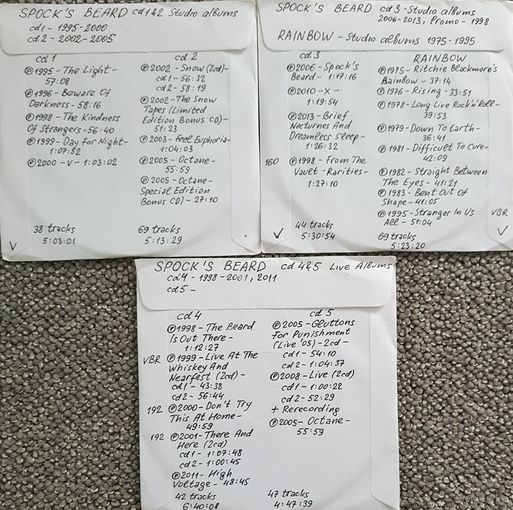 SPOCK'S BEARD cd 1&2 Studio albums
cd 1 - 1995-2000
cd 2 - 2002-2005
cd 1
℗1995 - The Light -
57:08
℗1996 - Beware Of
Darkness - 58:16
℗1998 - The Kindness
Of Strangers - 56:40
℗1999 - Day For Night -
1:07:52
℗2000 - V - 1:03:02
38 tracks
5:03:01
V
cd 2
℗2002 - Snow (2cd) -
cd 1 - 56:32
cd 2 - 58:19
℗2002 - The Snow
Tapes (Limited
Edition Bonus CD) -
51:23
℗2003 - Feel Euphoria -
1:04:03
℗2005 - Octane -
55:59
℗2005 - Octane -
Special Edition
Bonus CD) - 27:10
69 tracks
5:13:29
SPOCK'S BEARD cd 3 - Studio albums
2006-2013, Promo - 1998
RAINBOW - Studio albums 1975-1995
cd 3
℗2006 - Spock's
Beard - 1:17:16
℗2010 - X -
1:19:54
℗2013 - Brief
Nocturnes And
Dreamless Sleep -
1:26:32
160 ℗1998 - From The
Vault - Rarities -
1:27:10
44 tracks
5:30:54
V
RAINBOW
℗1975 - Ritchie Blackmore's
Rainbow - 37:14
℗1976 - Rising - 33:51
℗1978 - Long Live Rock'n'Roll -
39:53
℗1979 - Down To Earth -
36:41
℗1981 - Difficult To Cure -
42:09
℗1982 - Straight Between
The Eyes - 41:21
℗1983 - Bent Out Of
Shape - 41:05
℗1995 - Stranger In Us
All - 51:04
VBR
69 tracks
5:23:20
V
SPOCK'S BEARD cd 4&5 Live Albums
cd 4 - 1998-2001, 2011
cd 5 -
cd 4
℗1998 - The Beard
Is Out There -
1:12:27
VBR ℗1999 - Live At The
Whiskey And
Nearfest (2cd) -
cd 1 - 43:38
cd 2 - 56:44
192 ℗2000 - Don't Try
This At Home -
49:59
192 ℗2001 - There And
Here (2cd)
cd 1 - 1:07:48
cd 2 - 1:00:45
℗2011 - High
Voltage - 48:45
42 tracks
6:40:08
cd 5
℗2005 - Gluttons
for Punishment
(Live '05) - 2cd -
cd 1 - 54:10
cd 2 - 1:04:37
℗2008 - Live (2cd)
cd 1 - 1:00:22
cd 2 - 52:29
+ Rerecording
℗2005 - Octane -
55:59
47 tracks
4:47:39